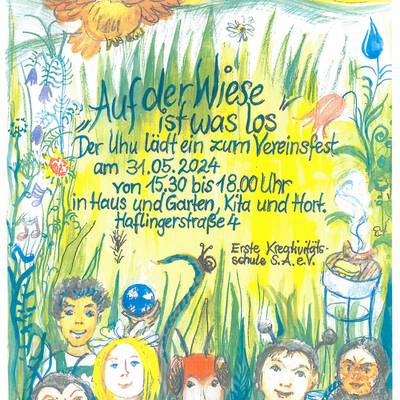 „Auf der Wiese
ist was los"
Der Uhu lädt ein zum Vereinsfest
am 31.05.2024
von 15.30 bis 18.00 Uhr
in Haus und Garten, Kita und Hort.
Haflingerstraße 4
Erste Kreativitäts-
schule S.A. e.V.